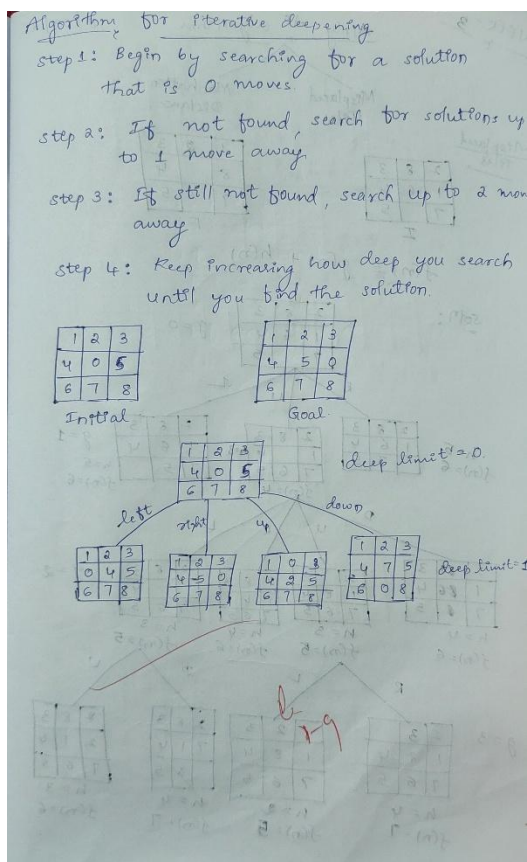 Algorithm for iterative deepening
step 1: Begin by searching for a solution
that is 0 moves.
step 2: If not found, search for solutions up
to 1 move away
step 3: If still not found, search up to 2 mov
away
step 4: Keep increasing how deep you search
until you find the solution.
1 2 3
4 0 5
6 7 8
Initial
1 2 3
4 5 0
6 7 8
Goal.
1 2 3
4 0 5
6 7 8
deep limit = 0.
left
right
up
down
1 2 3
0 4 5
6 7 8
1 2 3
4 5 0
6 7 8
1 0 3
4 2 5
6 7 8
1 2 3
4 7 5
6 0 8
deep limit = 1